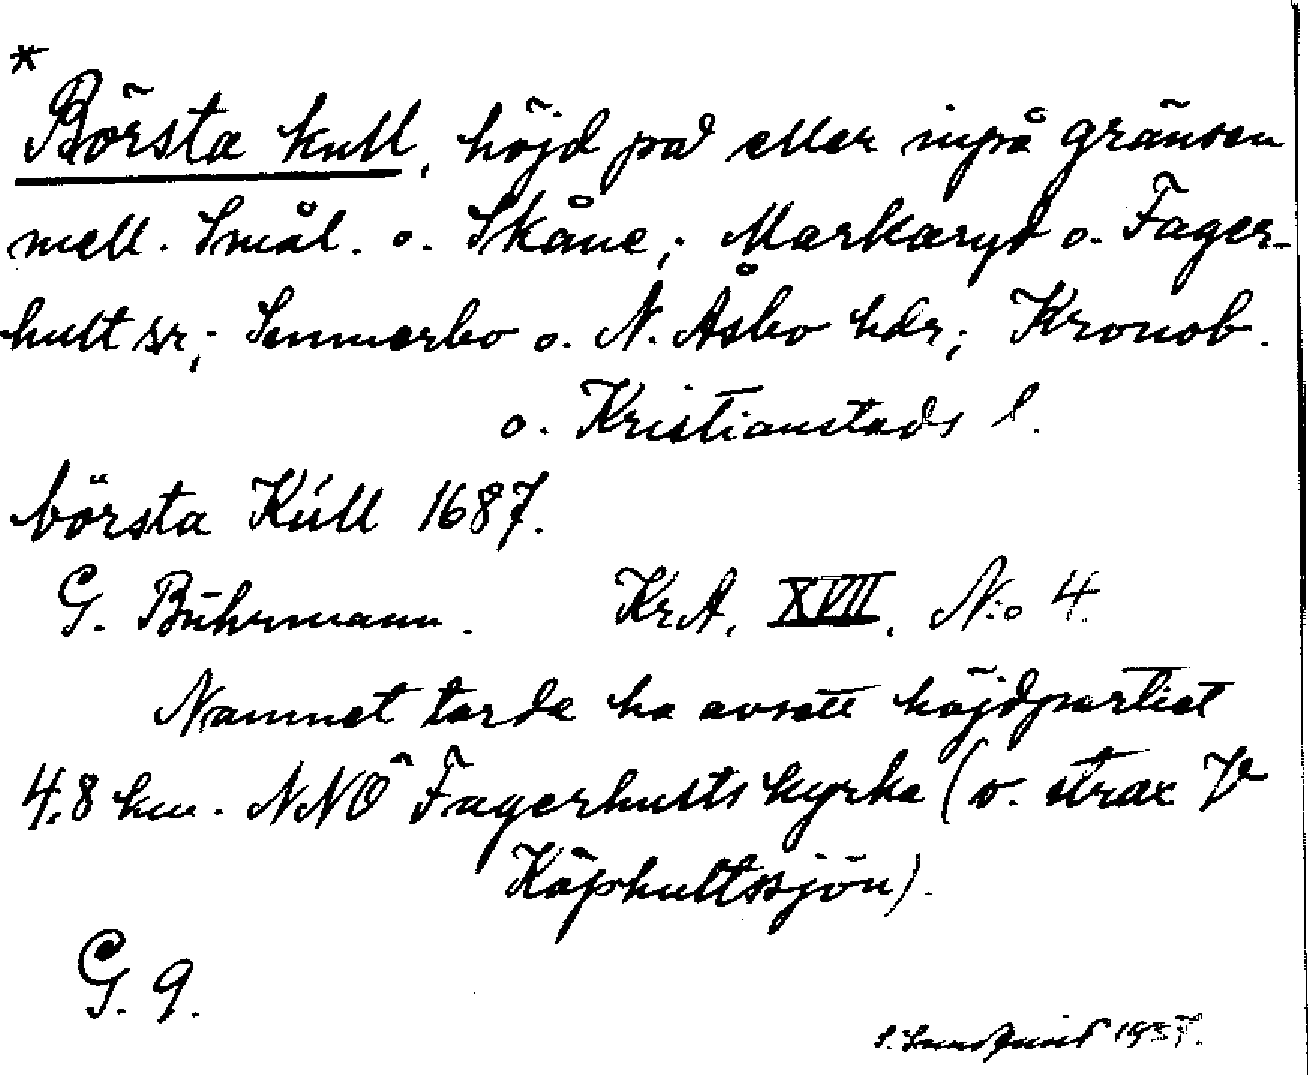 *
Börsta kull, höjd på eller inpå gränsen
mell. Smål. o. Skåne; Markaryd o. Fager-
hult sr; Sunnerbo o. N. Åsbo hdr; Kronob.
o. Kristianstads l.
börsta Kúll 1687.
G. Buhrmann. KrA, XVII, N:o 4.
Namnet torde ha avsett höjdpartiet
4,8 km. NNÖ Fagerhults kyrka (o. strax V
Köphultssjön).
G. 9.
Lundquist 1937.